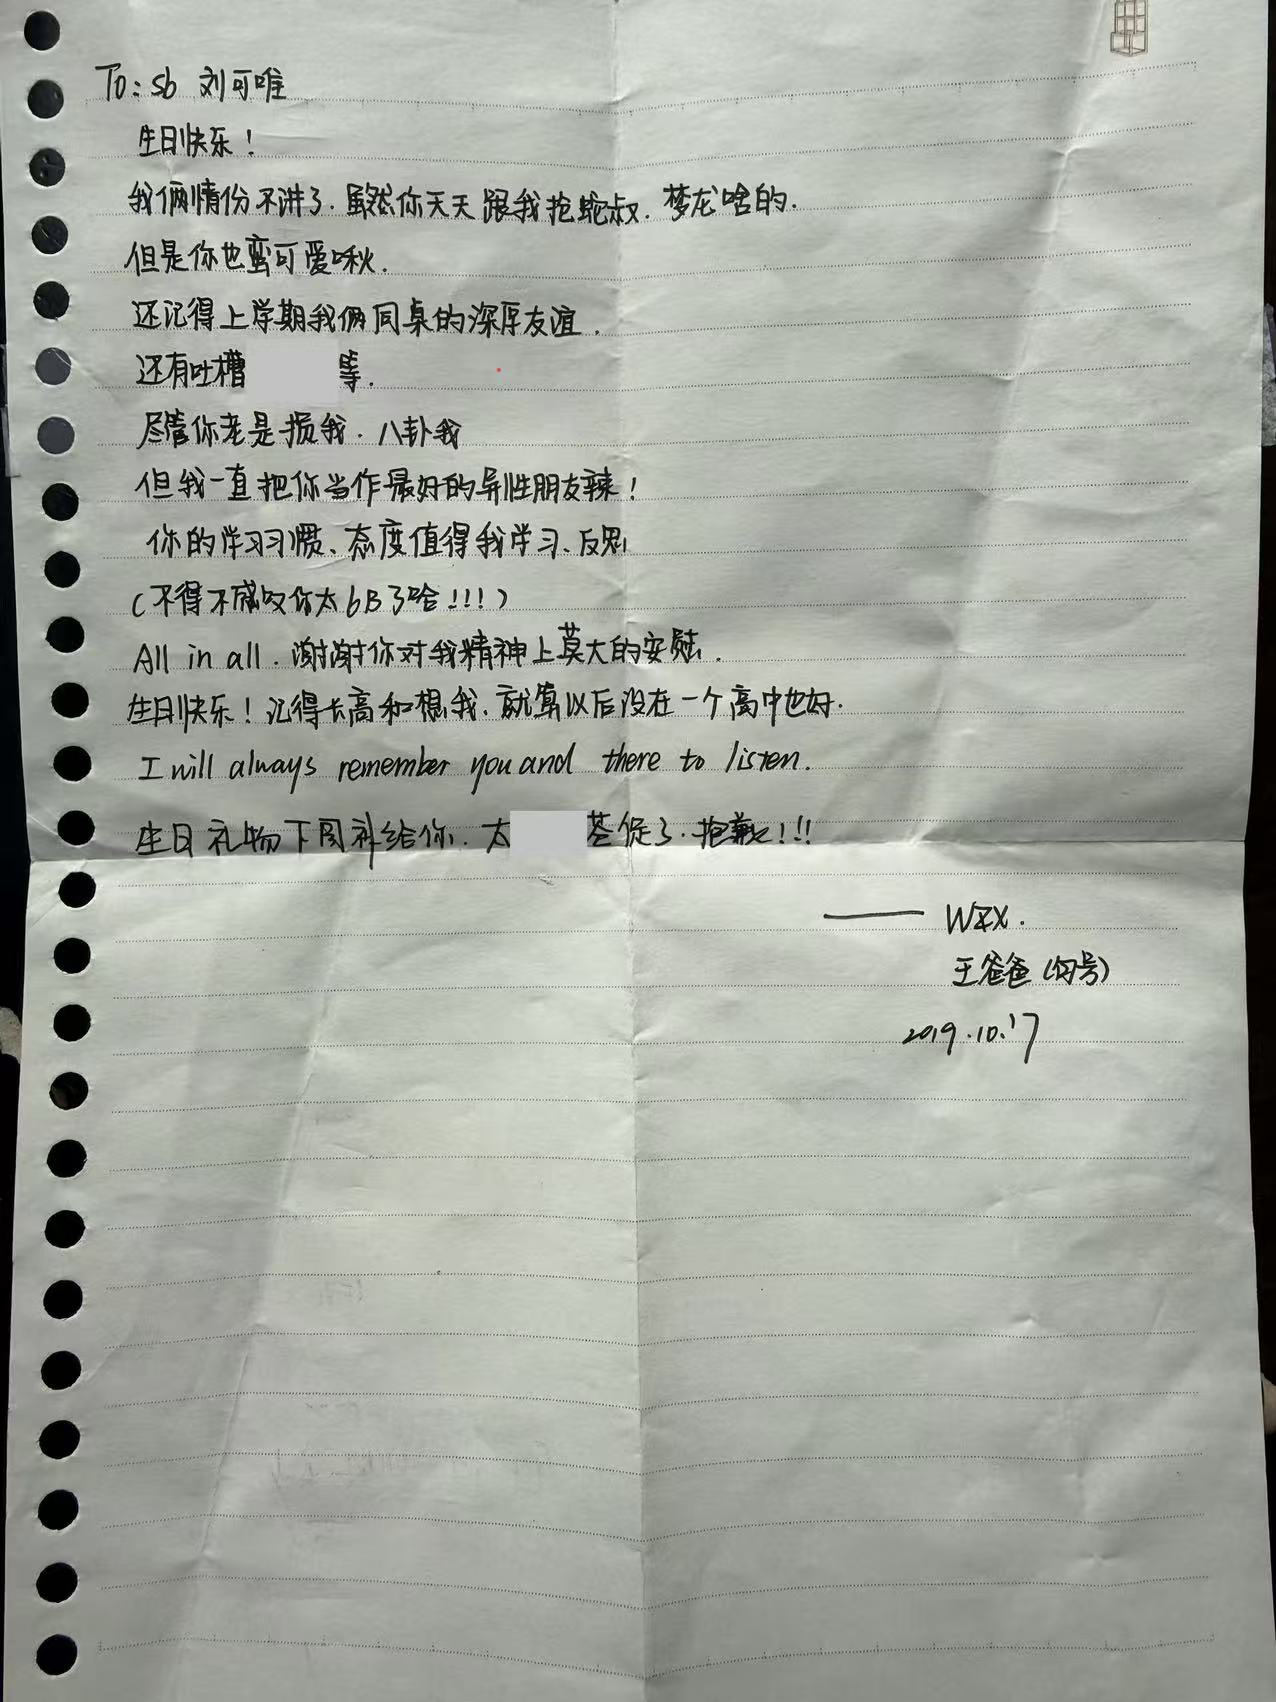 To: sb 刘可唯
生日快乐！
我俩情份不讲了.虽然你天天跟我抢蛇叔.梦龙啥的.
但是你也蛮可爱啾.
还记得上学期我俩同桌的深厚友谊.
还有吐槽 等.
尽管你老是损我.八卦我
但我一直把你当作最好的异性朋友辣！
你的学习习惯、态度值得我学习、反思
(不得不感叹你太6B了哈!!!)
All in all.谢谢你对我精神上莫大的安慰.
生日快乐！记得长高和想我.就算以后没在一个高中也好.
I will always remember you and there to listen.
生日礼物下周补给你.太 促了.抱歉!!!
—— WZX.
王爸爸(句号)
2019.10.17